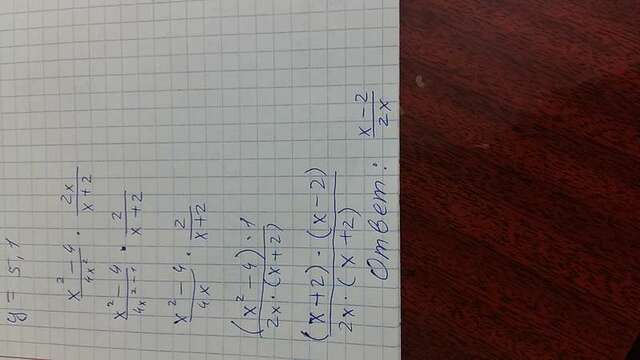 y = 5,1
x² - 4 / 4x² · 2x / x + 2
x² - 4 / 4x²⁻¹ · 2 / x + 2
x² - 4 / 4x · 2 / x + 2
(x² - 4) · 1 / 2x · (x + 2)
(x + 2) · (x - 2) / 2x · (x + 2)
Ответ: x - 2 / 2x